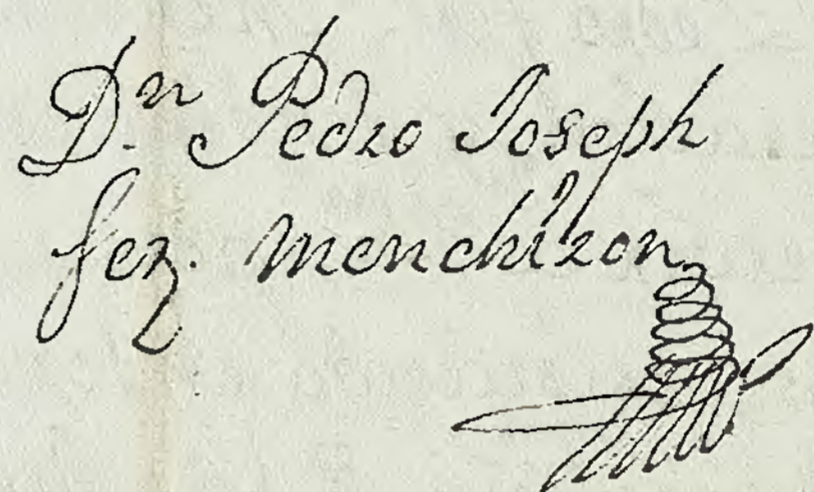 D.n Pedro Joseph
fez. Menchiron